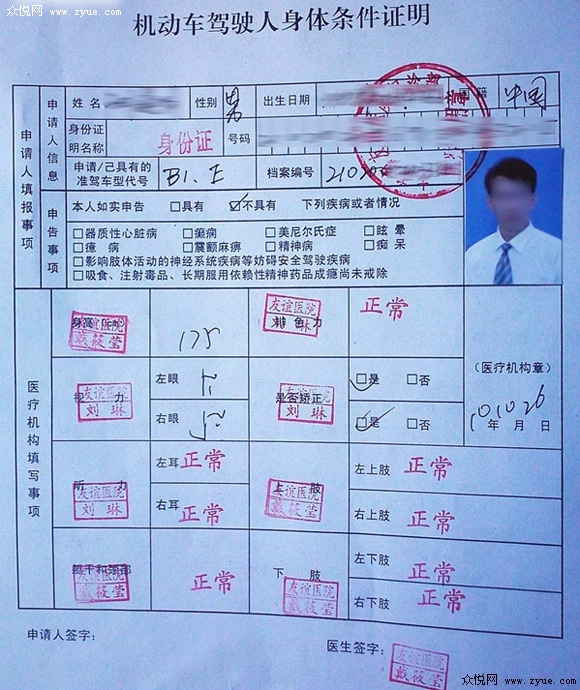 众悦网 www.zyue.com
机动车驾驶人身体条件证明
申请人填报事项
申请人信息
姓名 性别 男 出生日期 国籍 中国
身份证明名称 身份证 号码
申请/已具有的准驾车型代号 B1.E 档案编号
申告事项
本人如实申告 □具有 ☑不具有 下列疾病或者情况
□器质性心脏病 □癫痫 □美尼尔氏症 □眩晕
□癔病 □震颤麻痹 □精神病 □痴呆
□影响肢体活动的神经系统疾病等妨碍安全驾驶疾病
□吸食、注射毒品、长期服用依赖性精神药品成瘾尚未戒除
医疗机构填写事项
身高(cm) 友谊医院 戴筱莹 175 辨色力 友谊医院 刘琳 正常
视力 友谊医院 刘琳 左眼 是否矫正 友谊医院 刘琳 ☑是 □否
右眼 ☑是 □否
(医疗机构章)
10年10月26日
听力 友谊医院 刘琳 左耳 正常 上肢 友谊医院 戴筱莹 左上肢 正常
右耳 正常 右上肢 正常
躯干和颈部 友谊医院 戴筱莹 正常 下肢 友谊医院 戴筱莹 左下肢 正常
右下肢 正常
申请人签字: 医生签字: 友谊医院 戴筱莹
众悦网 www.zyue.com